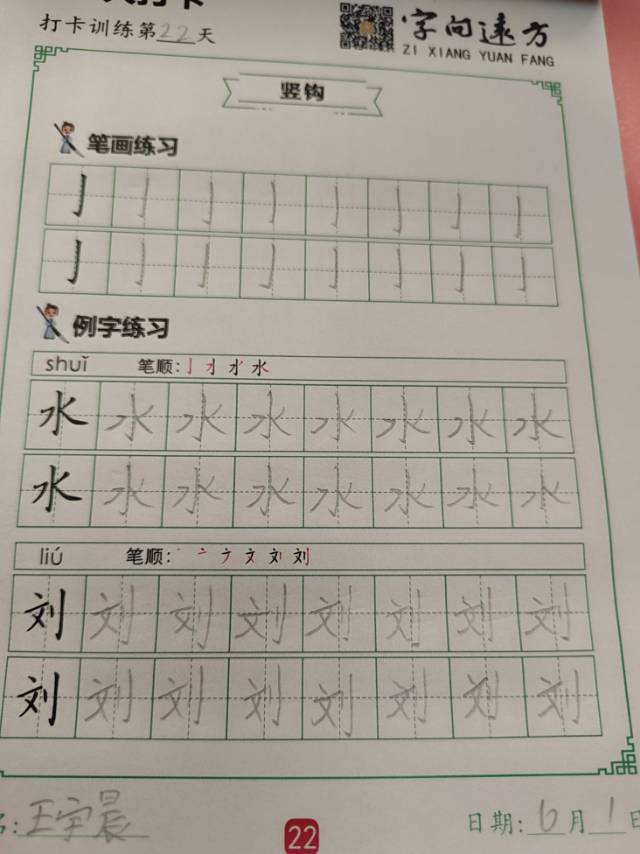 打卡
打卡训练第22天
字向远方
ZI XIANG YUAN FANG
竖钩
笔画练习
亅 亅 亅 亅 亅 亅 亅 亅
亅 亅 亅 亅 亅 亅 亅 亅
例字练习
shuǐ 笔顺:
水 水 水 水 水 水 水 水
水 水 水 水 水 水 水 水
liú 笔顺:
刘 刘 刘 刘 刘 刘 刘 刘
刘 刘 刘 刘 刘 刘 刘 刘
名:王宇晨
22
日期:6月1日